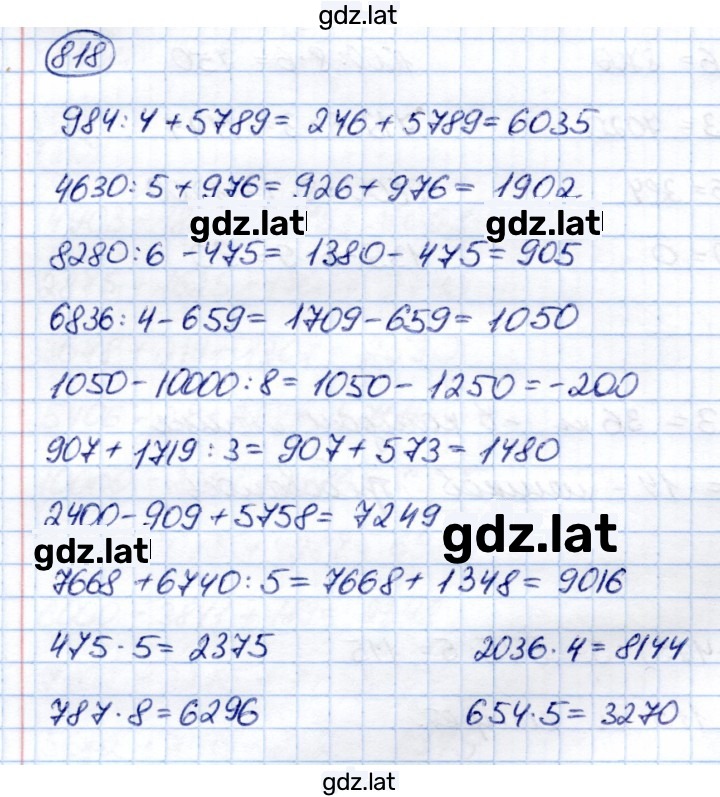 gdz.lat
818
984:4+5789= 246+5789=6035
4630:5+976= 926+976= 1902
gdz.lat gdz.lat
8280:6-475= 1380-475=905
6836:4-659= 1709-659= 1050
1050-10000:8= 1050- 1250=-200
907+1719:3= 907+573=1480
2400-909+5758= 7249
gdz.lat gdz.lat
7668+6740:5=7668+1348= 9016
475·5= 2375 2036·4=8144
787·8=6296 654·5= 3270
gdz.lat